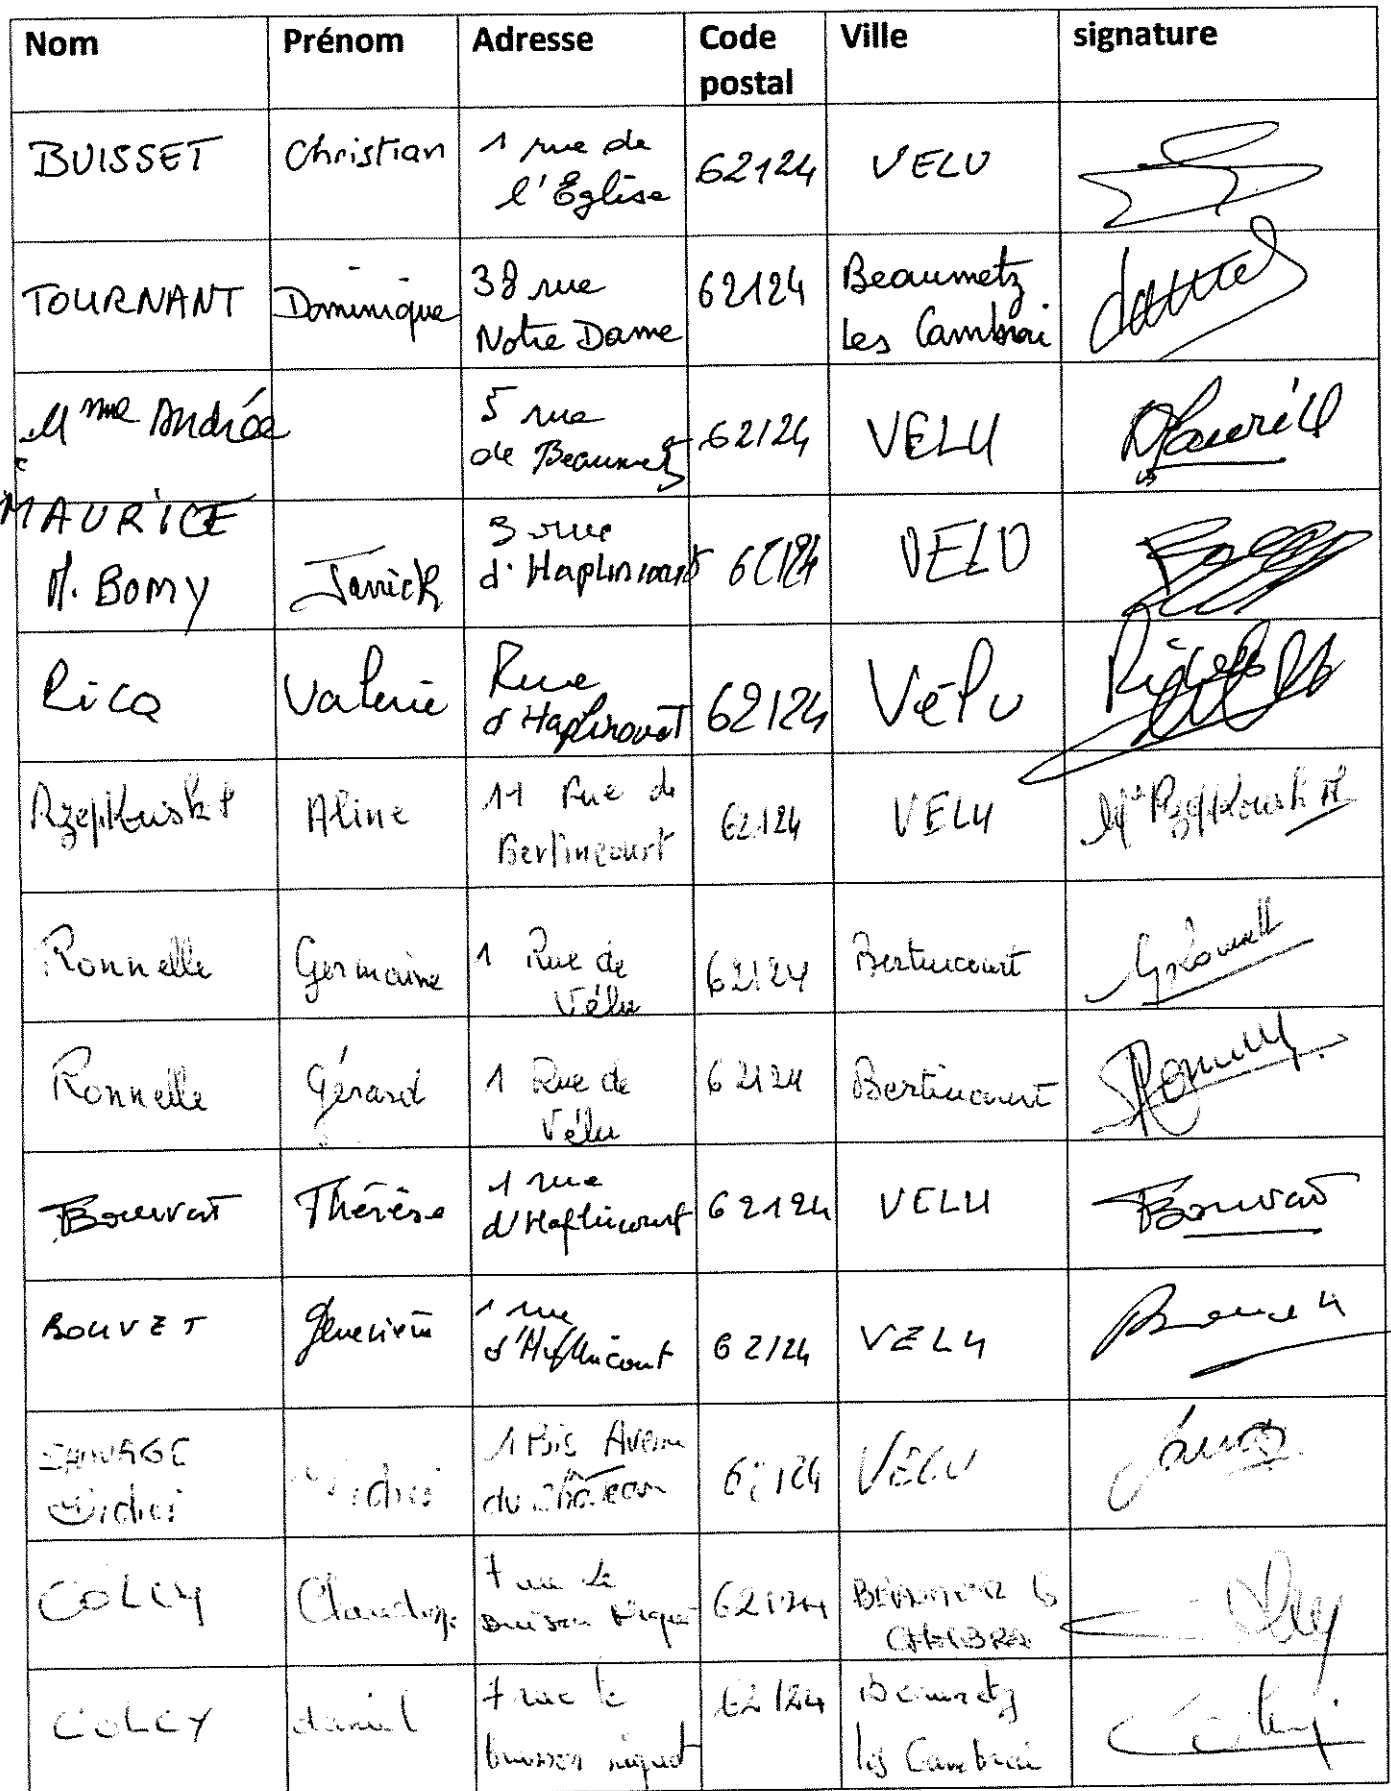 Nom Prénom Adresse Code postal Ville signature
BUISSET Christian 1 rue de l'Eglise 62124 VELU
TOURNANT Dominique 38 rue Notre Dame 62124 Beaumetz les Cambrai
Mme Andrée MAURICE 5 rue de Beaumetz 62124 VELU
M. BOMY Janick 3 rue d'Haplincourt 62124 VELU
Rica Valerie Rue d'Haplincourt 62124 Vélu
Rzepkowski Aline 11 Rue de Bertincourt 62124 VELU Me Rzepkowski A
Ronnelle Germaine 1 Rue de Vélu 62124 Bertincourt
Ronnelle Gérard 1 Rue de Vélu 62124 Bertincourt
Bouvet Thérèse 1 rue d'Haplincourt 62124 VELU Bouvet
BOUVET Geneviève 1 rue d'Haplincourt 62124 VELU
SAUVAGE Didier Didier 1 Bis Avenue du Château 62124 VELU
COLLY 7 rue le buisson 62124
COLLY daniel 7 rue le buisson 62124 Beaumetz les Cambrai